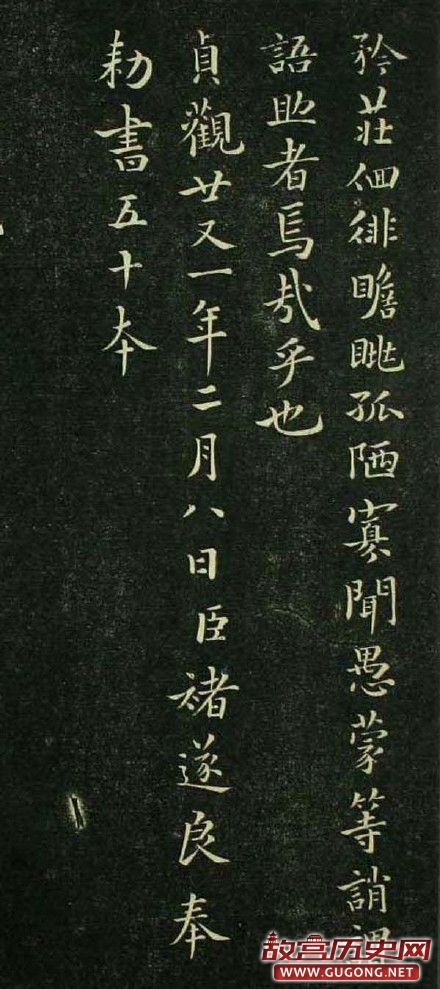 矜莊佪徘瞻眺孤陋寡聞愚蒙等誚謂
語助者焉哉乎也
貞觀廿又一年二月八日臣褚遂良奉
勅書五十本
故宫历史网
WWW.GUGONG.NET